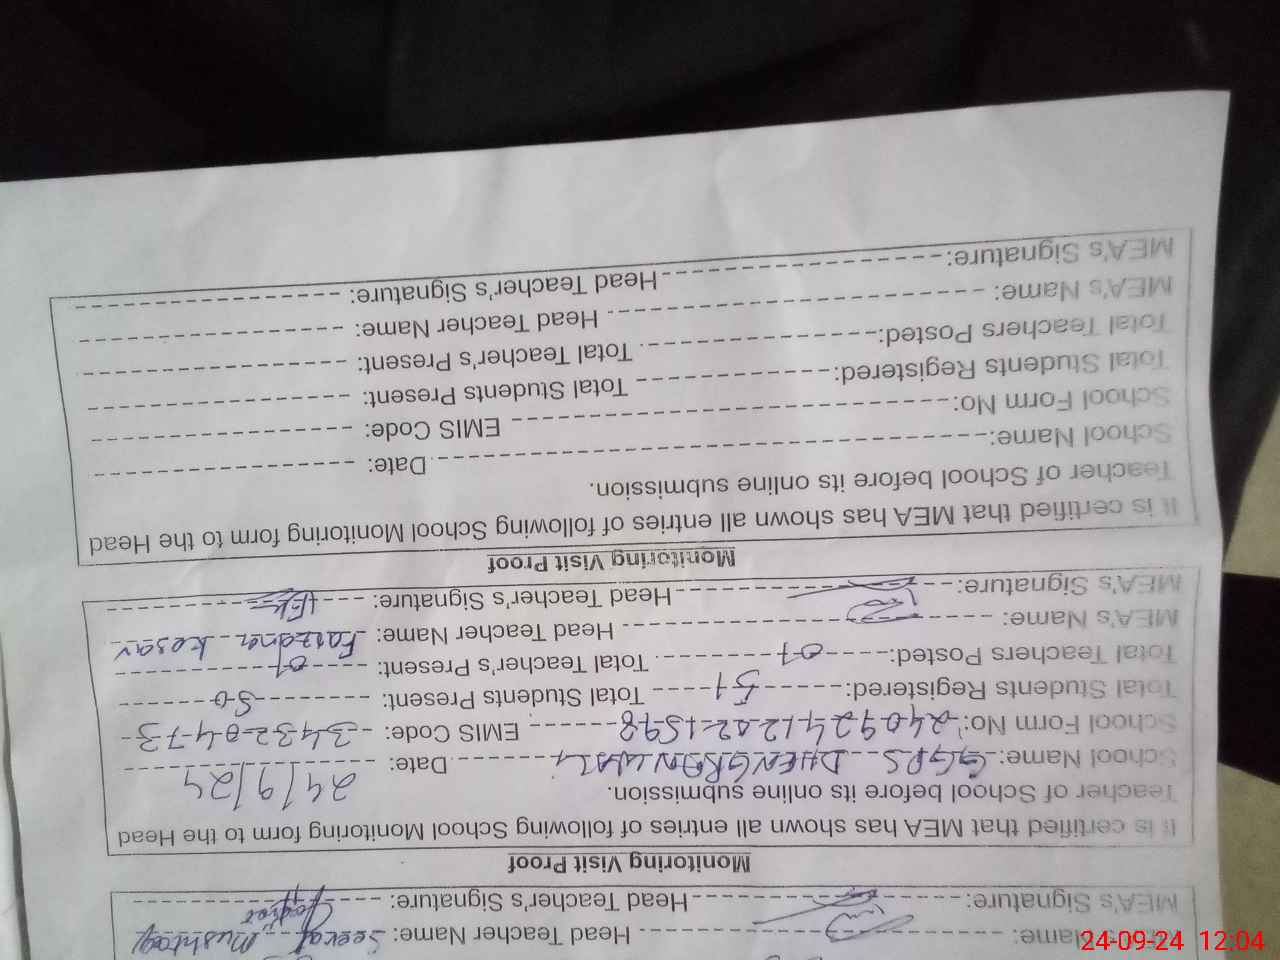 MEA's Name: Head Teacher Name: Seerat Mushtaq
MEA's Signature: Head Teacher's Signature:
Monitoring Visit Proof
It is certified that MEA has shown all entries of following School Monitoring form to the Head
Teacher of School before its online submission.
School Name: GGPS DHENGRANWALI Date: 24/9/24
School Form No: 24092412021598 EMIS Code: 34320473
Total Students Registered: 51 Total Students Present: 50
Total Teachers Posted: 01 Total Teacher's Present: 01
MEA's Name: Head Teacher Name: Farzana Kosar
MEA's Signature: Head Teacher's Signature:
Monitoring Visit Proof
It is certified that MEA has shown all entries of following School Monitoring form to the Head
Teacher of School before its online submission.
School Name: Date:
School Form No: EMIS Code:
Total Students Registered: Total Students Present:
Total Teachers Posted: Total Teacher's Present:
MEA's Name: Head Teacher Name:
MEA's Signature: Head Teacher's Signature:
24-09-24 12:04